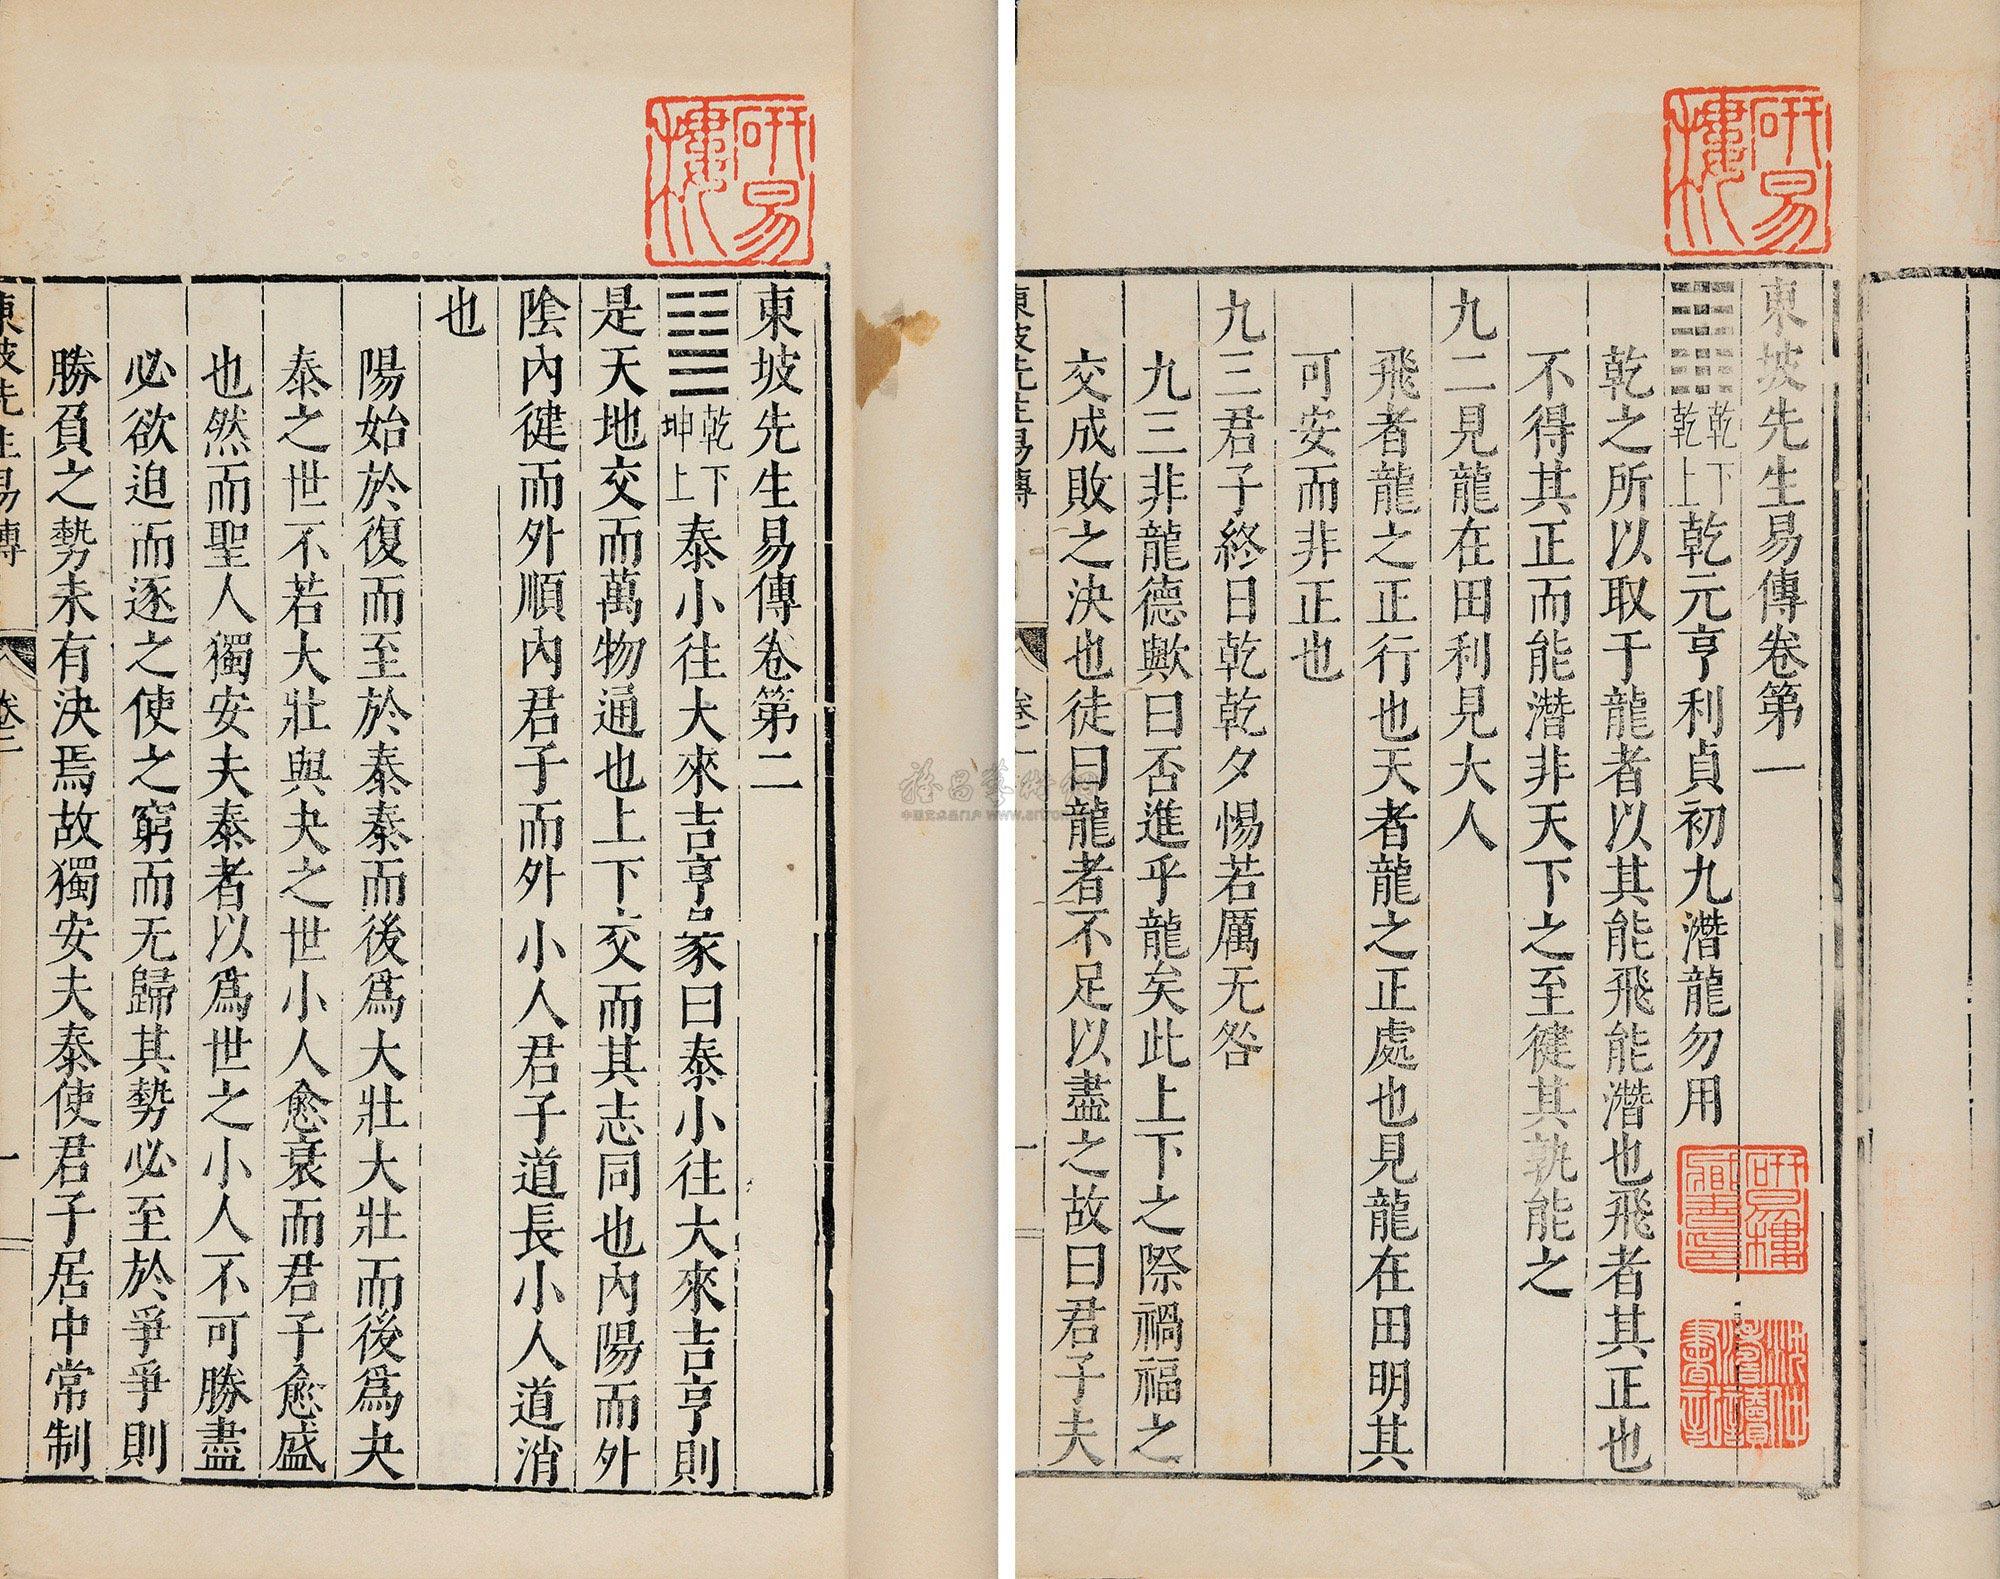 東坡先生易傳卷第一
乾下
乾上
乾元亨利貞初九潛龍勿用
乾之所以取于龍者以其能飛能潛也飛者其正也
不得其正而能潛非天下之至健其孰能之
九二見龍在田利見大人
飛者龍之正行也天者龍之正處也見龍在田明其
可安而非正也
九三君子終日乾乾夕惕若厲无咎
九三非龍德歟曰否進乎龍矣此上下之際禍福之
交成敗之決也徒曰龍者不足以盡之故曰君子夫
東坡先生易傳
卷一
一
研易樓
研易樓
藏書印
東坡先生易傳卷第二
乾下
坤上
泰小往大來吉亨彖曰泰小往大來吉亨則
是天地交而萬物通也上下交而其志同也內陽而外
陰內健而外順內君子而外小人君子道長小人道消
也
陽始於復而至於泰泰而後為大壯大壯而後為夬
泰之世不若大壯與夬之世小人愈衰而君子愈盛
也然而聖人獨安夫泰者以為世之小人不可勝盡
必欲迫而逐之使之窮而无歸其勢必至於爭爭則
勝負之勢未有決焉故獨安夫泰使君子居中常制
東坡先生易傳
卷二
一
研易樓